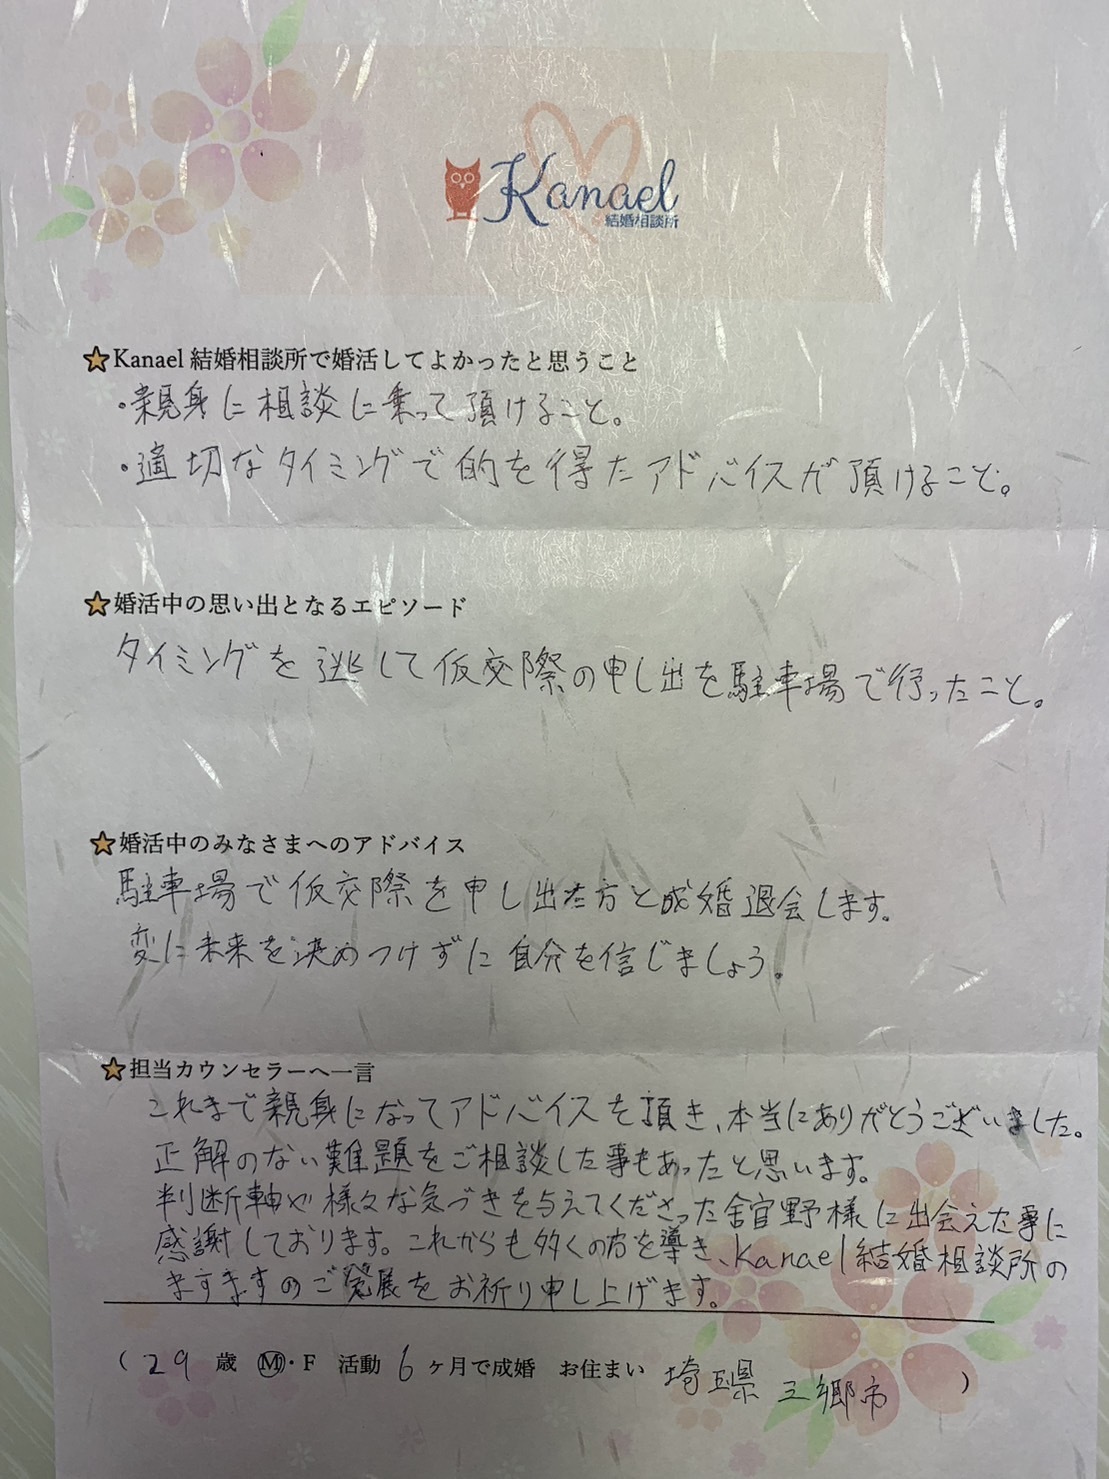 Kanael
結婚相談所
Kanael 結婚相談所で婚活してよかったと思うこと
・親身に相談に乗って頂けること。
・適切なタイミングで的を得たアドバイスが頂けること。
婚活中の思い出となるエピソード
タイミングを逃して仮交際の申し出を駐車場で行ったこと。
婚活中のみなさまへのアドバイス
駐車場で仮交際を申し出た方と成婚退会します。
変に未来を決めつけずに自分を信じましょう。
担当カウンセラーへ一言
これまで親身になってアドバイスを頂き、本当にありがとうございました。
正解のない難題をご相談した事もあったと思います。
判断軸や様々な気づきを与えてくださった舘野様に出会えた事に
感謝しております。これからも多くの方を導き、Kanael結婚相談所の
ますますのご発展をお祈り申し上げます。
(29 歳 M・F 活動 6 ヶ月で成婚 お住まい 埼玉県 三郷市)